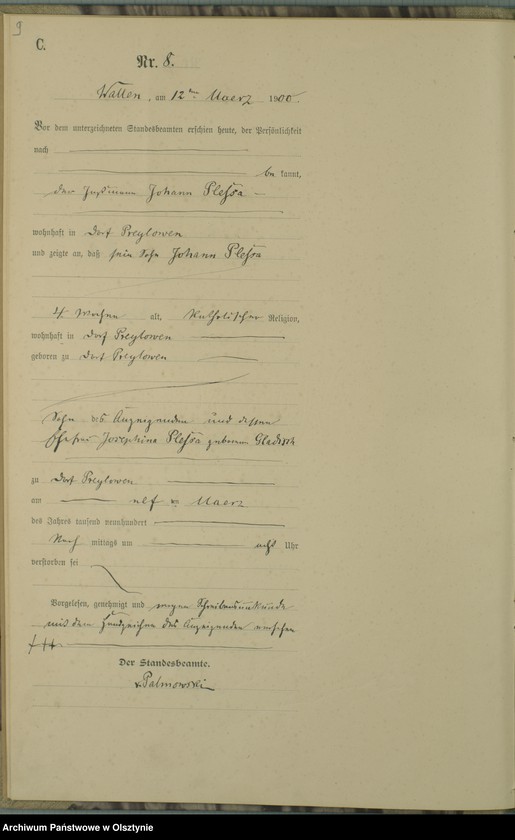 9
C.
Nr. 8.
Wallen, am 12ten Maerz 1900.
Vor dem unterzeichneten Standesbeamten erschien heute, der Persönlichkeit
nach
be kannt,
der Johann Plessa
wohnhaft in Dorf Preylowen
und zeigte an, daß sein Sohn Johann Plessa
4 Wochen alt, Katholischer Religion,
wohnhaft in Dorf Preylowen
geboren zu Dorf Preylowen
Sohn des Anzeigenden und dessen
Ehefrau Josephine Plessa geborenen Gladisch
zu Dorf Preylowen
am elf Maerz
des Jahres tausend neunhundert
Nach mittags um acht Uhr
verstorben sei
Vorgelesen, genehmigt und wegen Schreibensunkunde
mit dem Handzeichen des Anzeigenden versehen
+++
Der Standesbeamte.
v. Palmowski
Archiwum Państwowe w Olsztynie